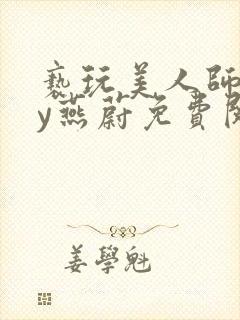 亵玩美人師
y燕蔚免費閱
姜學魁